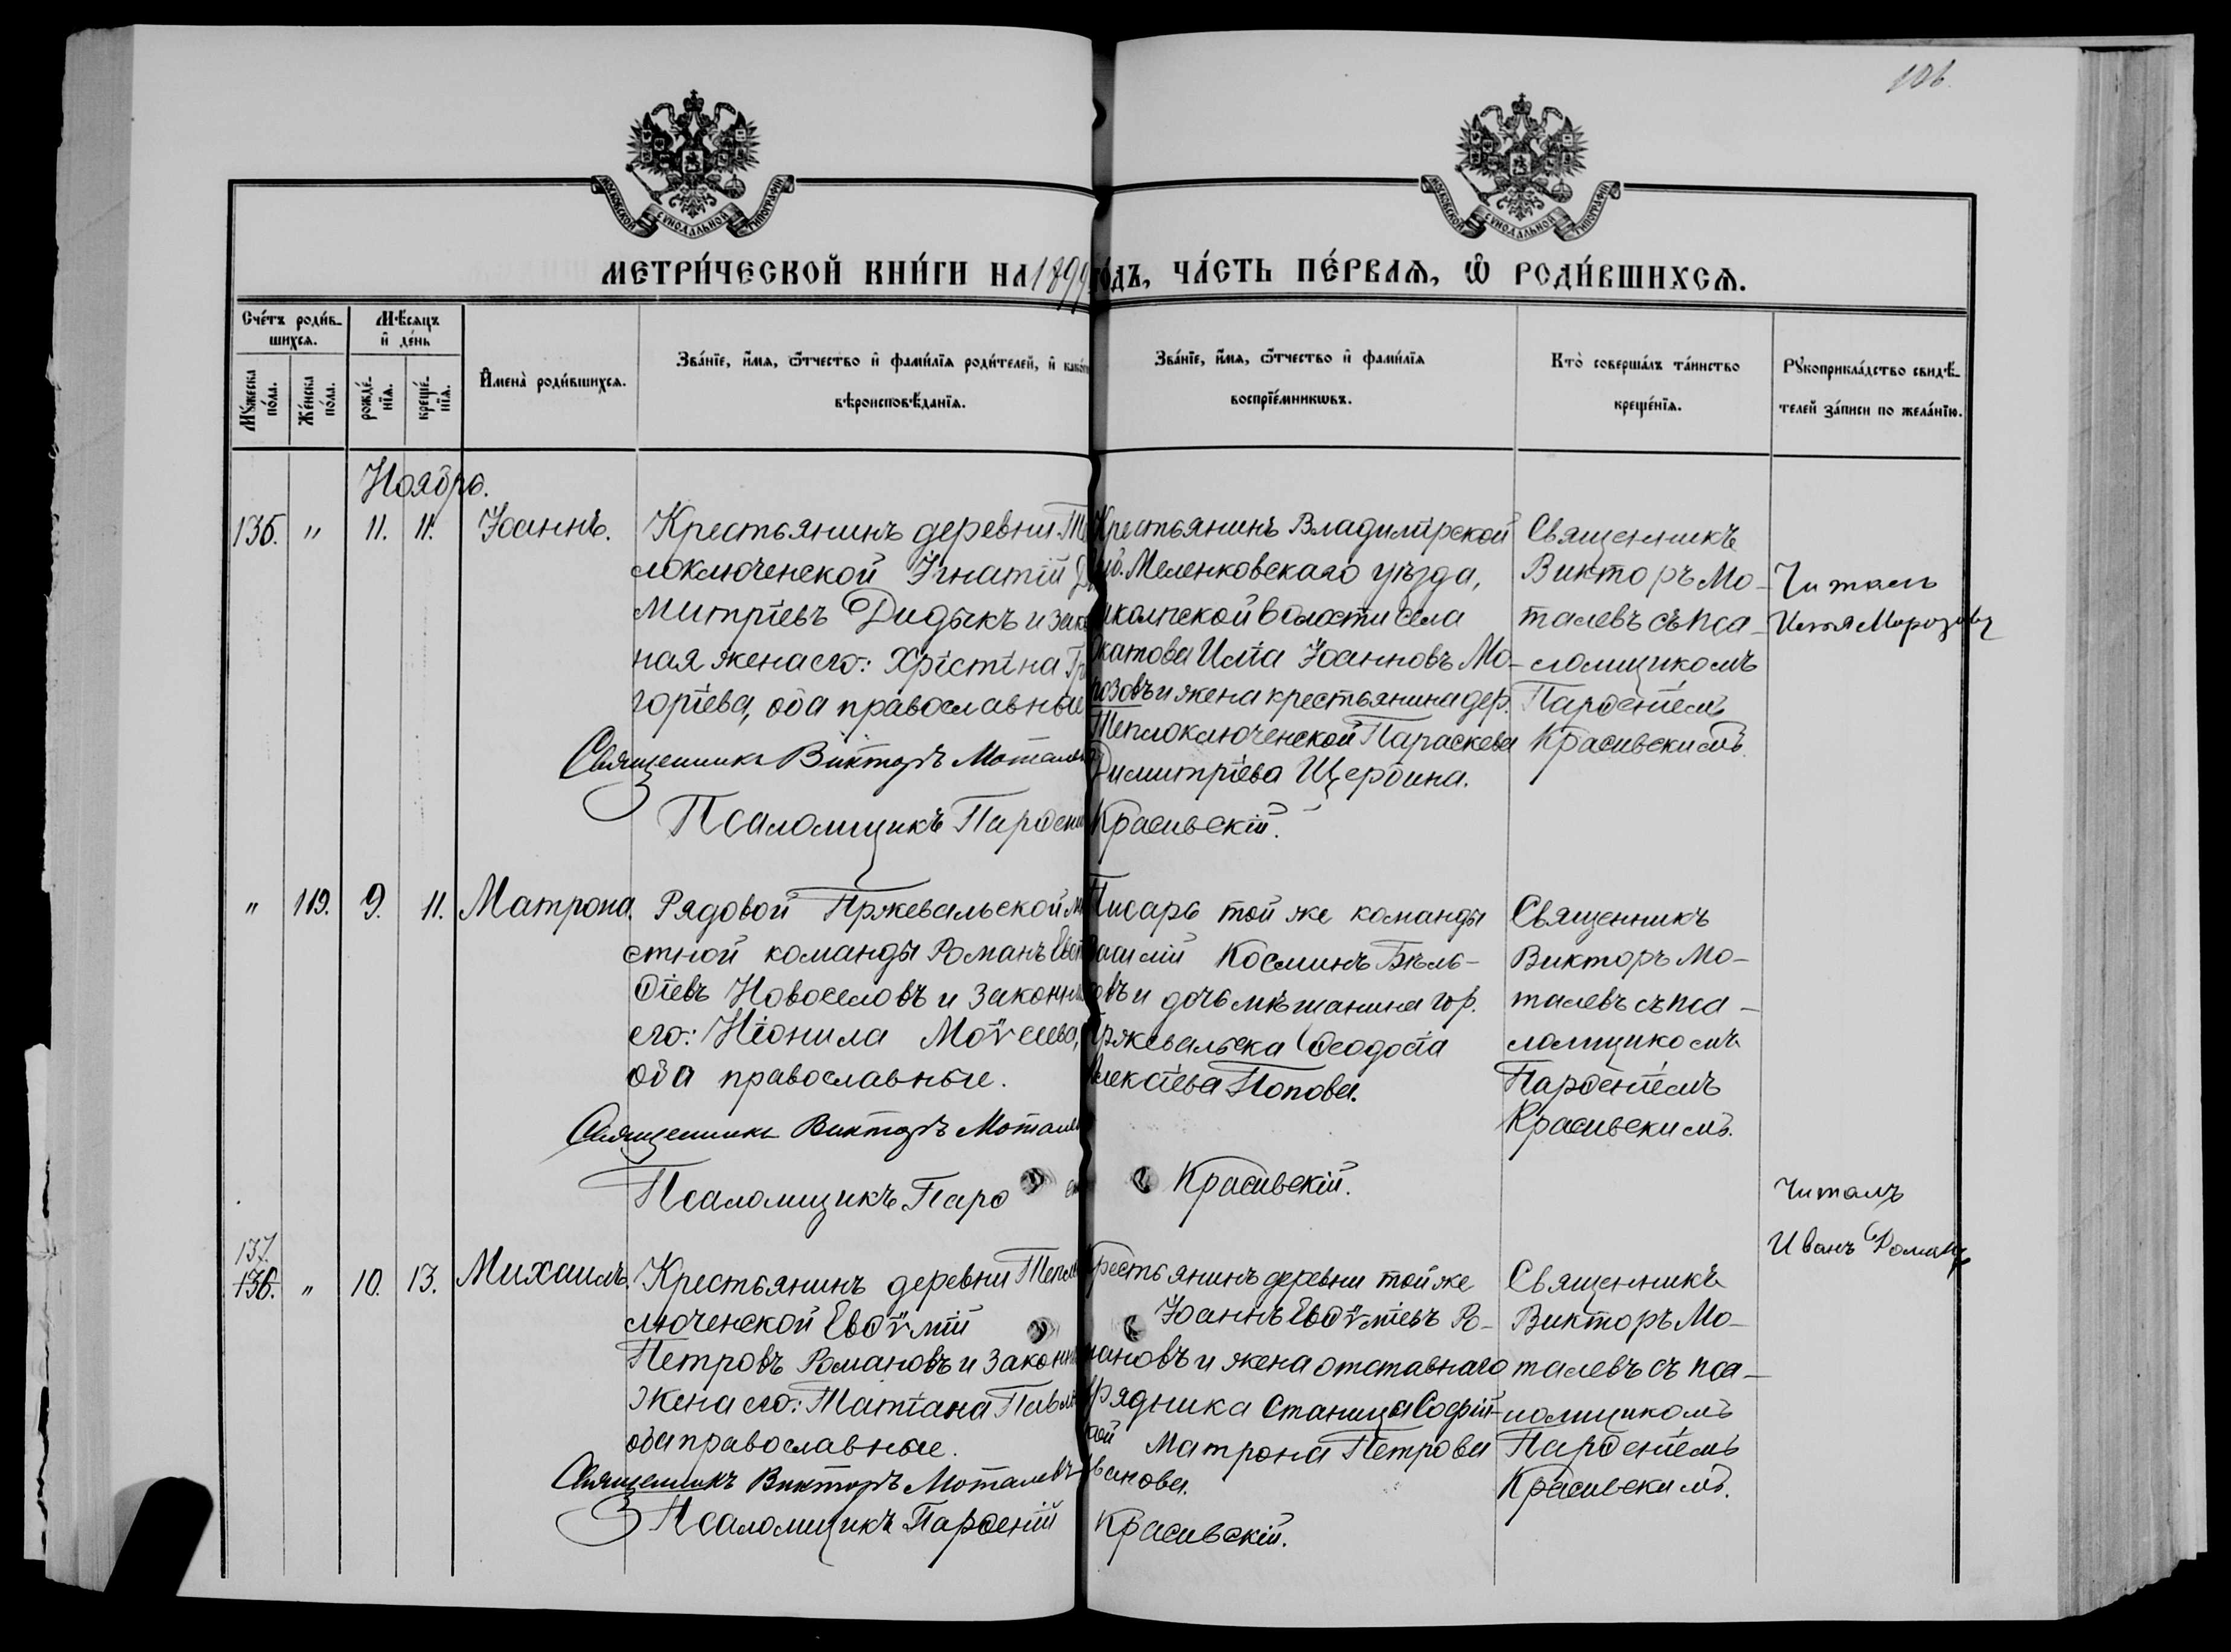 106.
МОСКОВСКОЙ СѴНОДАЛЬНОЙ ТИПОГРАФІИ
МОСКОВСКОЙ СѴНОДАЛЬНОЙ ТИПОГРАФІИ
МЕТРИ́ЧЕСКОЙ КНИ́ГИ НА 1899 го́дъ, ЧА́СТЬ ПЕ́РВАѦ, Ѡ҆ РОДИ́ВШИХСѦ.
Сче́тъ роди́в-
шихсѧ.
Мꙋ́жеска по́ла.
Же́нска по́ла.
Мѣ́сѧцъ
и҆ де́нь
рожде́-
нїѧ.
креще́-
нїѧ.
И҆мена̀ роди́вшихсѧ.
Зва́нїе, и҆́мѧ, ѻ҆́тчество и҆ фами́лїѧ роди́телей, и҆
вѣроисповѣ́данїѧ.
Зва́нїе, и҆́мѧ, ѻ҆́тчество и҆ фами́лїѧ
воспрїе́мникѡвъ.
Кто̀ соверша́лъ та́инство
креще́нїѧ.
Рꙋкоприкла́дство свидѣ́-
телей за́писи по жела́нїю.
Ноябрь.
136. " 11. 11. Іоаннъ.
Крестьянинъ деревни Те
лоключенской Игнатій Ди
митріевъ Дидыкъ и зако
ная жена его: Христіна Гри
горіева, оба православные
Священникъ Викторъ Моталевъ
Псаломщикъ Парѳеній
Крестьянинъ Владимірской
губ. Меленковскаго уѣзда,
волости села
Илія Іоанновъ Мо-
розовъ и жена крестьянина дер.
Теплоключенской Параскева
Димитріева Щербина.
Красивскій.
Священникъ
Викторъ Мо-
талевъ съ пса-
ломщикомъ
Парѳеніемъ
Красивскимъ.
Читалъ
Илья Морозовъ
" 119. 9. 11. Матрона.
Рядовой Пржевальской мѣ
стной команды Романъ Евст
ѳіевъ Новоселовъ и законн
его: Неонила Моѵсеева,
оба православные.
Священникъ Викторъ Моталевъ
Псаломщикъ Парѳ
Писарь той же команды
Василій Косминъ Бѣль-
овъ и дочь мѣщанина гор.
Пржевальска Ѳеодосія
Алексіева Попова.
Красивскій.
Священникъ
Викторъ Мо-
талевъ съ пса-
ломщикомъ
Парѳеніемъ
Красивскимъ.
137.
136. " 10. 13. Михаилъ.
Крестьянинъ деревни Тепло
ключенской Евѳѵмій
Петровъ Романовъ и законн
жена его: Татіана Павло
оба православные.
Священникъ Викторъ Моталевъ
Псаломщикъ Парѳеній
Крестьянинъ деревни той же
Іоаннъ Евѳѵміевъ Ро-
мановъ и жена отставнаго
урядника станицы Софій-
кой Матрона Петрова
Иванова.
Красивскій.
Священникъ
Викторъ Мо-
талевъ съ пса-
ломщикомъ
Парѳеніемъ
Красивскимъ.
Читалъ
Иванъ Романовъ